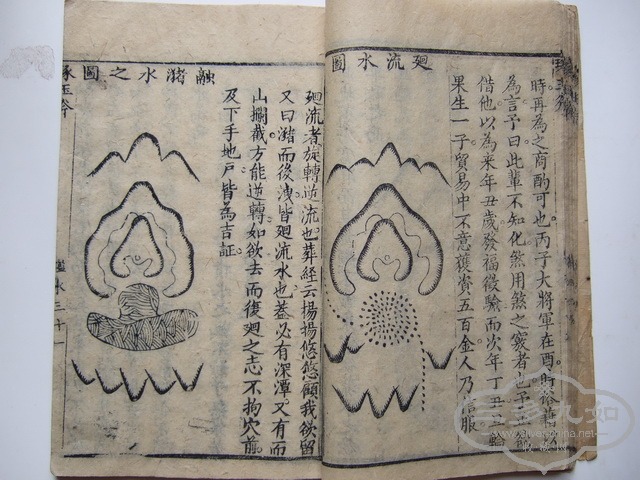 時再為之商酌可也丙子大將軍在酉時俗
為言予曰此輩不知化煞用煞之竅者也予
借他以為来年丑歲發福後驗而次年丁丑
果生一子貿易中不意獲資五百金人乃信服
廻流水圖
廻流者旋轉逆流也葬經云揚揚悠悠顧我欲留
又曰瀦而後洩皆廻流水也葢必有深潭又有而
山攔截方能逆轉如欲去而復廻之志不拘穴前
及下手地戶皆為吉証
融瀦水之圖
水三十一
www.silverschina.net